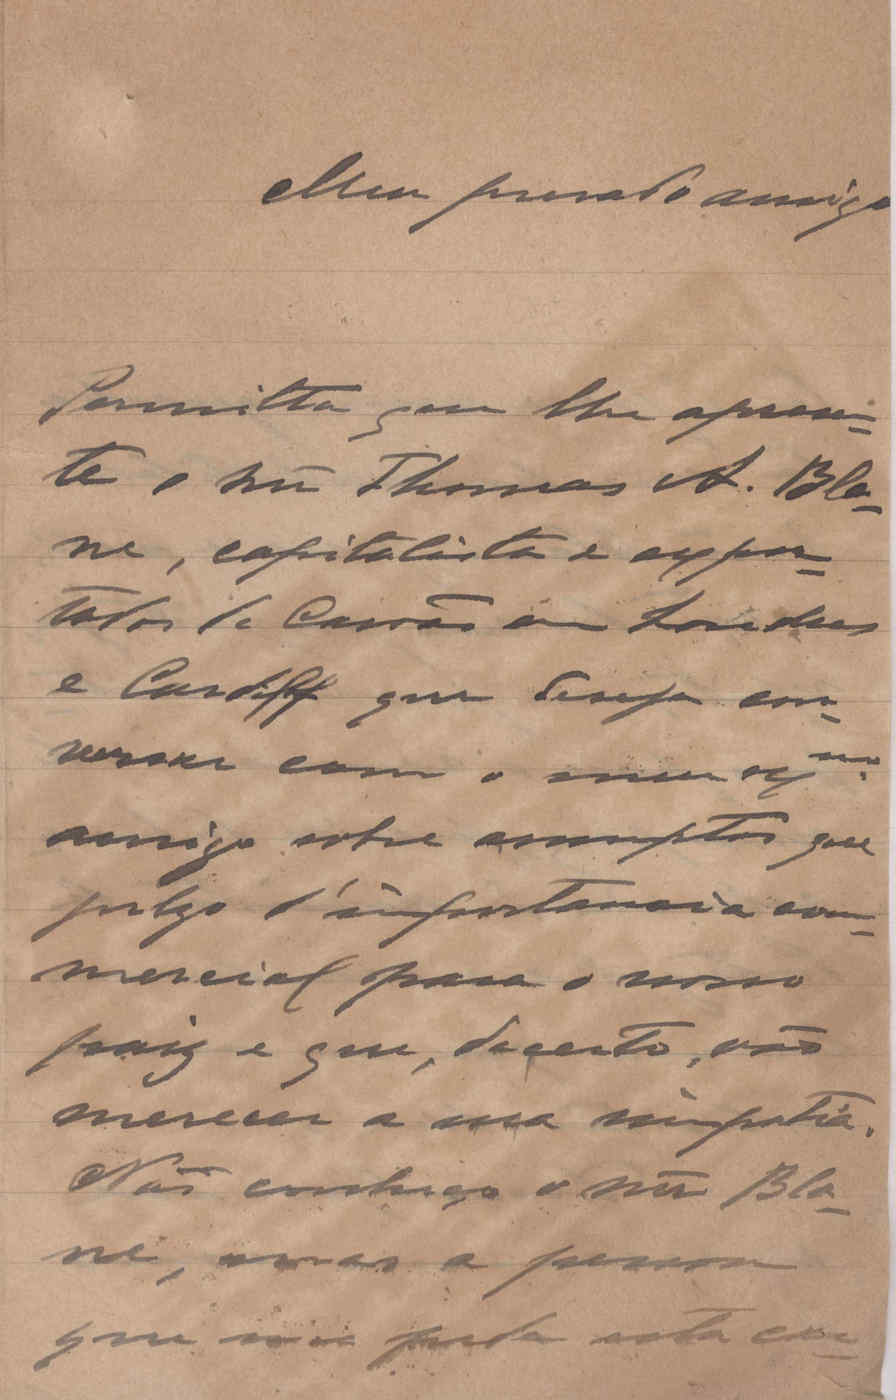 Meu presado amigo
Permitta que lhe apresen-
te o snr Thomas A. Bla-
ne, capitalista e expor-
tador de Carvão em Londres
e Cardiff que deseja con-
versar com o meu exmo.
amigo sobre assumptos que
julgo d'importancia com-
mercial para o nosso
paiz e que, decerto, vão
merecer a sua simpatia.
Não conheço o snr Bla-
ne, mas a pessoa
que me pede esta car-